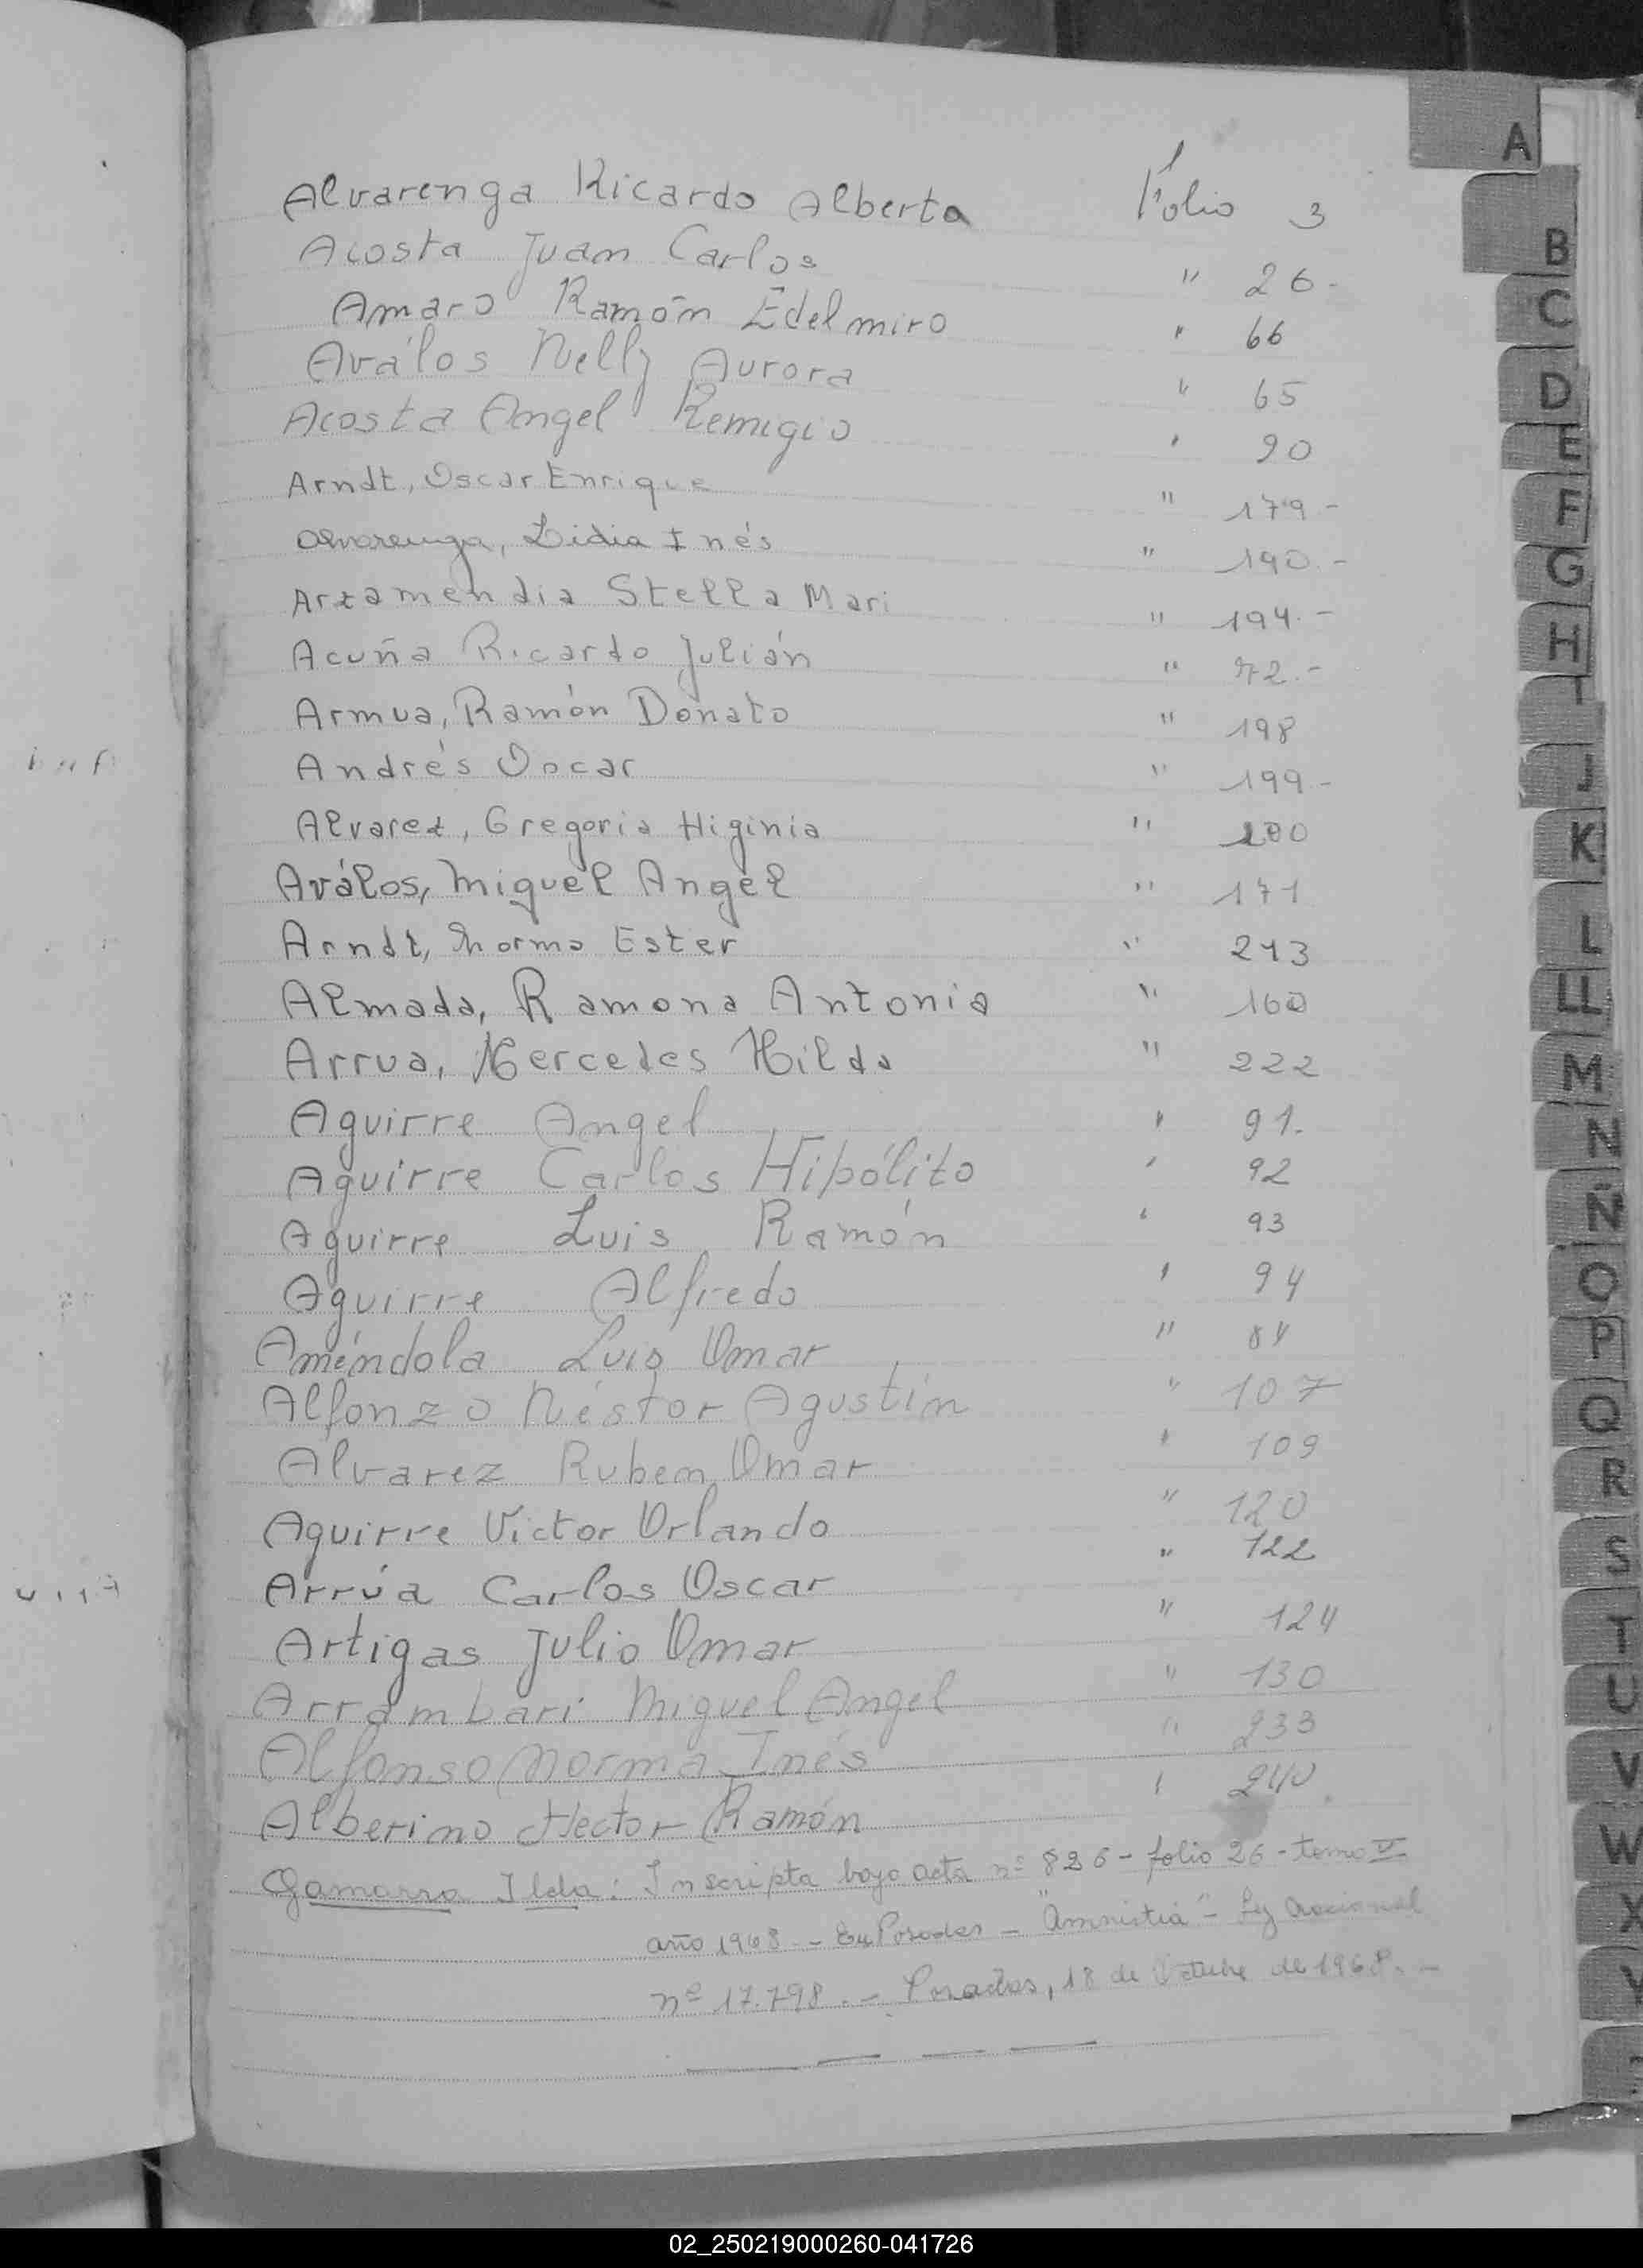 A
B
C
D
E
F
G
H
I
J
K
L
LL
M
N
Ñ
O
P
Q
R
S
T
U
V
W
X
Y
Alvarenga Ricardo Alberto Folio 3
Acosta Juan Carlos " 26-
Amaro Ramón Edelmiro " 66
Aválos Nelly Aurora " 65
Acosta Angel Remigio " 90
Arndt, Oscar Enrique " 179-
Alvarenga, Lidia Inés " 190.-
Arzamendia Stella Mari " 194.-
Acuña Ricardo Julián " 72.-
Armua, Ramón Donato " 198
Andrés Oscar " 199-
Alvarez, Gregoria Higinia " 200
Aválos, Miguel Angel " 171
Arndt, Norma Ester " 213
Almada, Ramona Antonia " 160
Arrua, Mercedes Hilda " 222
Aguirre Angel " 91.
Aguirre Carlos Hipólito " 92
Aguirre Luis Ramón " 93
Aguirre Alfredo " 94
Améndola Luis Omar " 84
Alfonzo Néstor Agustín " 107
Alvarez Ruben Omar " 109
Aguirre Victor Orlando " 120
Arrúa Carlos Oscar " 122
Artigas Julio Omar " 124
Arrambari Miguel Angel " 130
Alfonso Norma Inés " 233
Alberino Hector Ramón " 240
Gamarra Ilda: Inscripta bajo acta nº 826 - folio 26 - tomo V
año 1968 - En Posadas - "Amnistia" - Ley Nacional
nº 17.798. - Posadas, 18 de Octubre de 1968. -
02_250219000260-041726